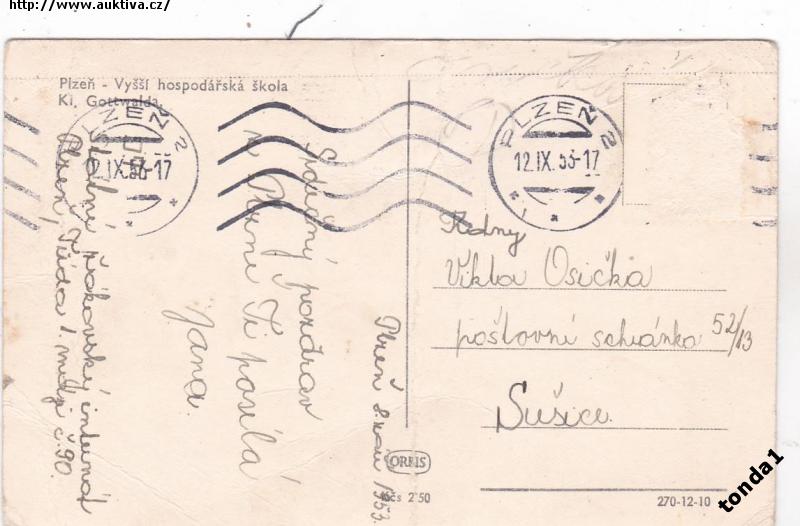 http://www.auktiva.cz/
Plzeň - Vyšší hospodářská škola
Kl. Gottwalda
PLZEŇ 2
12.IX.53-17
PLZEŇ 2
12.IX.53-17
Plzeň 1953.
Srdečný pozdrav
z Plzně Ti posílá
Jana.
žákovský internát
Plzeň, Třída 1. máje č. 90.
Viktor Osička
poštovní schránka 52/13
Sušice.
ORBIS
Kčs 2'50
270-12-10
tonda1